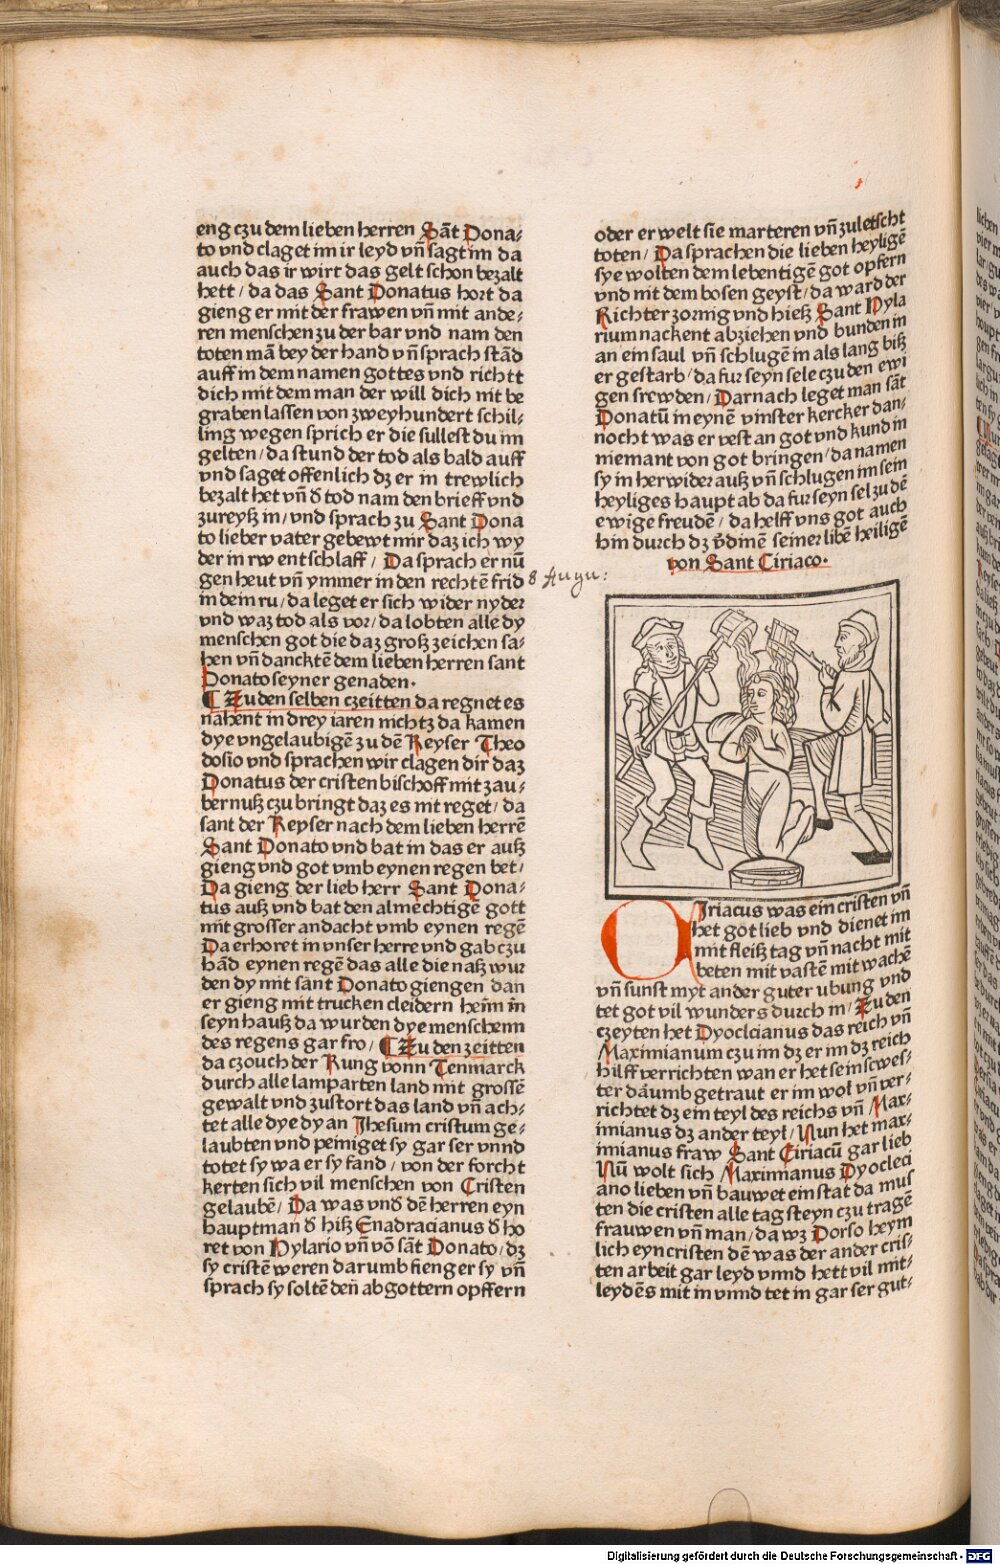 eng czu dem lieben herren Sāt Dona⸗
to vnd claget im ir leyd vn̄ sagt im da
auch das ir wirt das gelt schon bezalt
hett / da das Sant Donatus hort da
gieng er mit der frawen vn̄ mit ande⸗
ren menschen zu der bar vnd nam den
toten mā bey der hand vn̄ sprach stād
auff in dem namen gottes vnd richtt
dich mit dem man der will dich nit be
graben lassen von zweyhundert schil⸗
ling wegen sprich er die sullest du im
gelten / da stund der tod als bald auff
vnd saget offenlich dz er in trewlich
bezalt het vn̄ d̄ tod nam den brieff vnd
zureyß in / vnd sprach zu Sant Dona
to lieber vater gebewt mir daz ich wy
der in rw entschlaff / Da sprach er nū
gen heut vn̄ ymmer in den rechtē frid
in dein ru / da leget er sich wider nyder
vnd waz tod als vor / da lobten alle dy
menschen got die daz groß zeichen sa⸗
hen vn̄ dancktē dem lieben herren sant
Donato seyner genaden.
¶ Zu den selben czeitten da regnet es
nahent in drey iaren nichtz da kamen
dye vngelaubigē zu dē Keyser Theo
dosio vnd sprachen wir clagen dir daz
Donatus der cristen bischoff mit zau⸗
bernuß czu bringt daz es nit reget / da
sant der Keyser nach dem lieben herrē
Sant Donato vnd bat in das er auß
gieng vnd got vmb eynen regen bet /
Da gieng der lieb herr Sant Dona⸗
tus auß vnd bat den almechtigē gott
mit grosser andacht vmb eynen regē
Da erhoret in vnser herre vnd gab czu
hād eynen regē das alle die naß wur
den dy mit sant Donato giengen dan
er gieng mit trucken cleidern heim in
seyn hauß da wurden dye menschenn
des regens gar fro / ¶ Zu den zeitten
da czouch der Kung vonn Tenmarck
durch alle lamparten land mit grossē
gewalt vnd zustort das land vn̄ ach⸗
tet alle dye dy an Jhesum cristum ge⸗
laubten vnd peiniget sy gar ser vnnd
totet sy wa er sy fand / von der forcht
kerten sich vil menschen von Cristen
gelaubē / Da was vnd̄ dē herren eyn
hauptman d̄ hiß Enadracianus d̄ ho
ret von Hylario vn̄ vō sāt Donato / dz
sy cristē weren darumb fieng er sy vn̄
sprach sy soltē den̄ abgottern opffern
oder er welt sie marteren vn̄ zuletscht
toten / Da sprachen die lieben heyligē
sye wolten dem lebentigē got opfern
vnd nit dem bosen geyst / da ward der
Richter zornig vnd hieß Sant Hyla
rium nackent abziehen vnd bunden in
an ein saul vn̄ schlugē in als lang biß
er gestarb / da fur seyn sele czu den ewi
gen frewden / Darnach leget man sāt
Donatū in eynē vinster kercker dan⸗
nocht was er vest an got vnd kund in
niemant von got bringen / da namen
sy in herwider auß vn̄ schlugen im sein
heyliges haupt ab da fur seyn sel zu dē
ewige freudē / da helff vns got auch
hin durch dz v̄dinē seiner libē heiligē
von Sant Ciriaco.
8 Augu:
Ciriacus was ein cristen vn̄
het got lieb vnd dienet im
mit fleiß tag vn̄ nacht mit
beten mit vastē mit wachē
vn̄ sunst myt ander guter ubung vnd
tet got vil wunders durch in / Zu den
czeyten het Dyoclcianus das reich vn̄
Maximianum czu im dz er im dz reich
hilff verrichten wan er het sein swes⸗
ter darumb getraut er im wol vn̄ ver⸗
richtet dz ein teyl des reichs vn̄ Max⸗
imianus dz ander teyl / Nun het max⸗
imianus fraw Sant Ciriacū gar lieb
Nū wolt sich Maximianus Dyocleci
ano lieben vn̄ bauwet ein stat da mus
ten die cristen alle tag steyn czu tragē
frauwen vn̄ man / da wz Dorso heym
lich eyn cristen dē was der ander cris⸗
ten arbeit gar leyd vnnd hett vil mit⸗
leydēs mit in vnnd tet in gar ser gut⸗
Digitalisierung gefördert durch die Deutsche Forschungsgemeinschaft - DFG